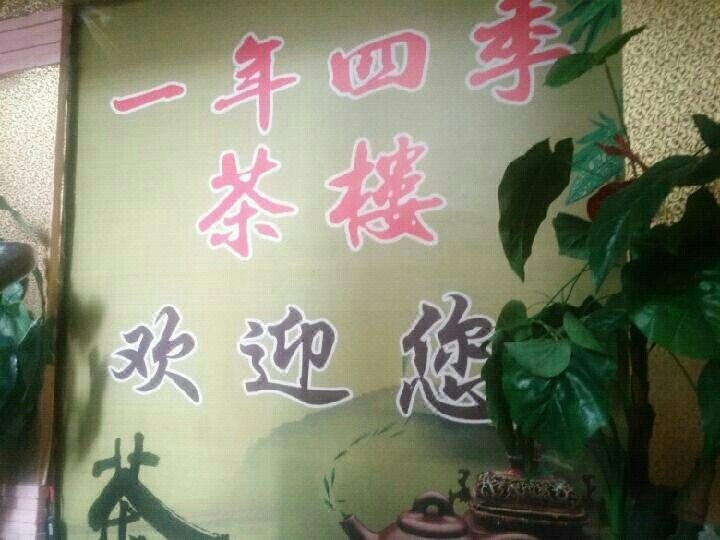 一年四季
茶楼
欢迎您
茶